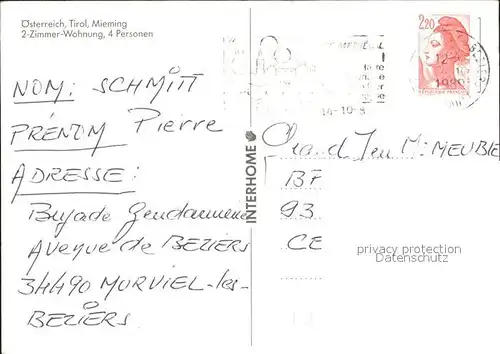 Österreich, Tirol, Mieming
2-Zimmer-Wohnung, 4 Personen
NOM: SCHMITT
PRÉNOM Pierre
ADRESSE:
Brigade Gendarmerie
Avenue de BEZIERS
34490 MURVIEL-les-
BEZIERS
INTERHOME
2,20
REPUBLIQUE FRANÇAISE
14-10-8
12-
1989
Grand Jeu M. MEUBLE
BP
93
CE
privacy protection
Datenschutz